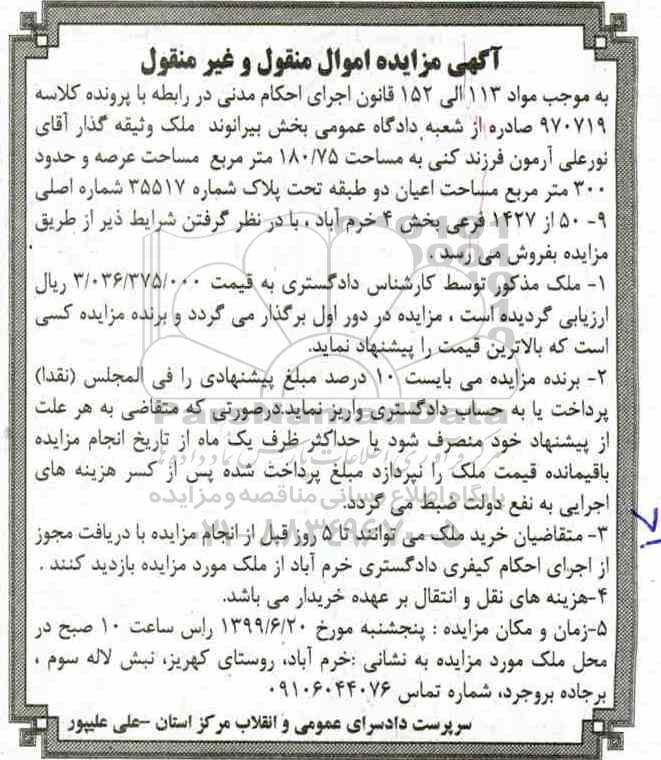 آگهی مزایده اموال منقول و غیر منقول
به موجب مواد ۱۱۳ الی ۱۵۲ قانون اجرای احکام مدنی در رابطه با پرونده کلاسه
۹۷۰۷۱۹ صادره از شعبه دادگاه عمومی بخش بیرانوند ملک وثیقه گذار آقای
نورعلی آرمون فرزند کنی به مساحت ۱۸۰/۷۵ متر مربع مساحت عرصه و حدود
۳۰۰ متر مربع مساحت اعیان دو طبقه تحت پلاک شماره ۳۵۵۱۷ شماره اصلی
۹- ۵۰ از ۱۴۲۷ فرعی بخش ۴ خرم آباد ، با در نظر گرفتن شرایط ذیر از طریق
مزایده بفروش می رسد .
۱- ملک مذکور توسط کارشناس دادگستری به قیمت ۳/۰۳۶/۳۷۵/۰۰۰ ریال
ارزیابی گردیده است ، مزایده در دور اول برگذار می گردد و برنده مزایده کسی
است که بالاترین قیمت را پیشنهاد نماید.
۲- برنده مزایده می بایست ۱۰ درصد مبلغ پیشنهادی را فی المجلس (نقدا)
پرداخت یا به حساب دادگستری واریز نماید.درصورتی که متقاضی به هر علت
از پیشنهاد خود منصرف شود یا حداکثر ظرف یک ماه از تاریخ انجام مزایده
باقیمانده قیمت ملک را نپردازد مبلغ پرداخت شده پس از کسر هزینه های
اجرایی به نفع دولت ضبط می گردد.
۳- متقاضیان خرید ملک می توانند تا ۵ روز قبل از انجام مزایده با دریافت مجوز
از اجرای احکام کیفری دادگستری خرم آباد از ملک مورد مزایده بازدید کنند .
۴-هزینه های نقل و انتقال بر عهده خریدار می باشد.
۵-زمان و مکان مزایده : پنجشنبه مورخ ۱۳۹۹/۶/۲۰ راس ساعت ۱۰ صبح در
محل ملک مورد مزایده به نشانی :خرم آباد، روستای کهریز، نبش لاله سوم ،
برجاده بروجرد، شماره تماس ۰۹۱۰۶۰۴۴۰۷۶
سرپرست دادسرای عمومی و انقلاب مرکز استان -علی علیپور
ParsNamadData
پایگاه اطلاع رسانی مناقصه و مزایده